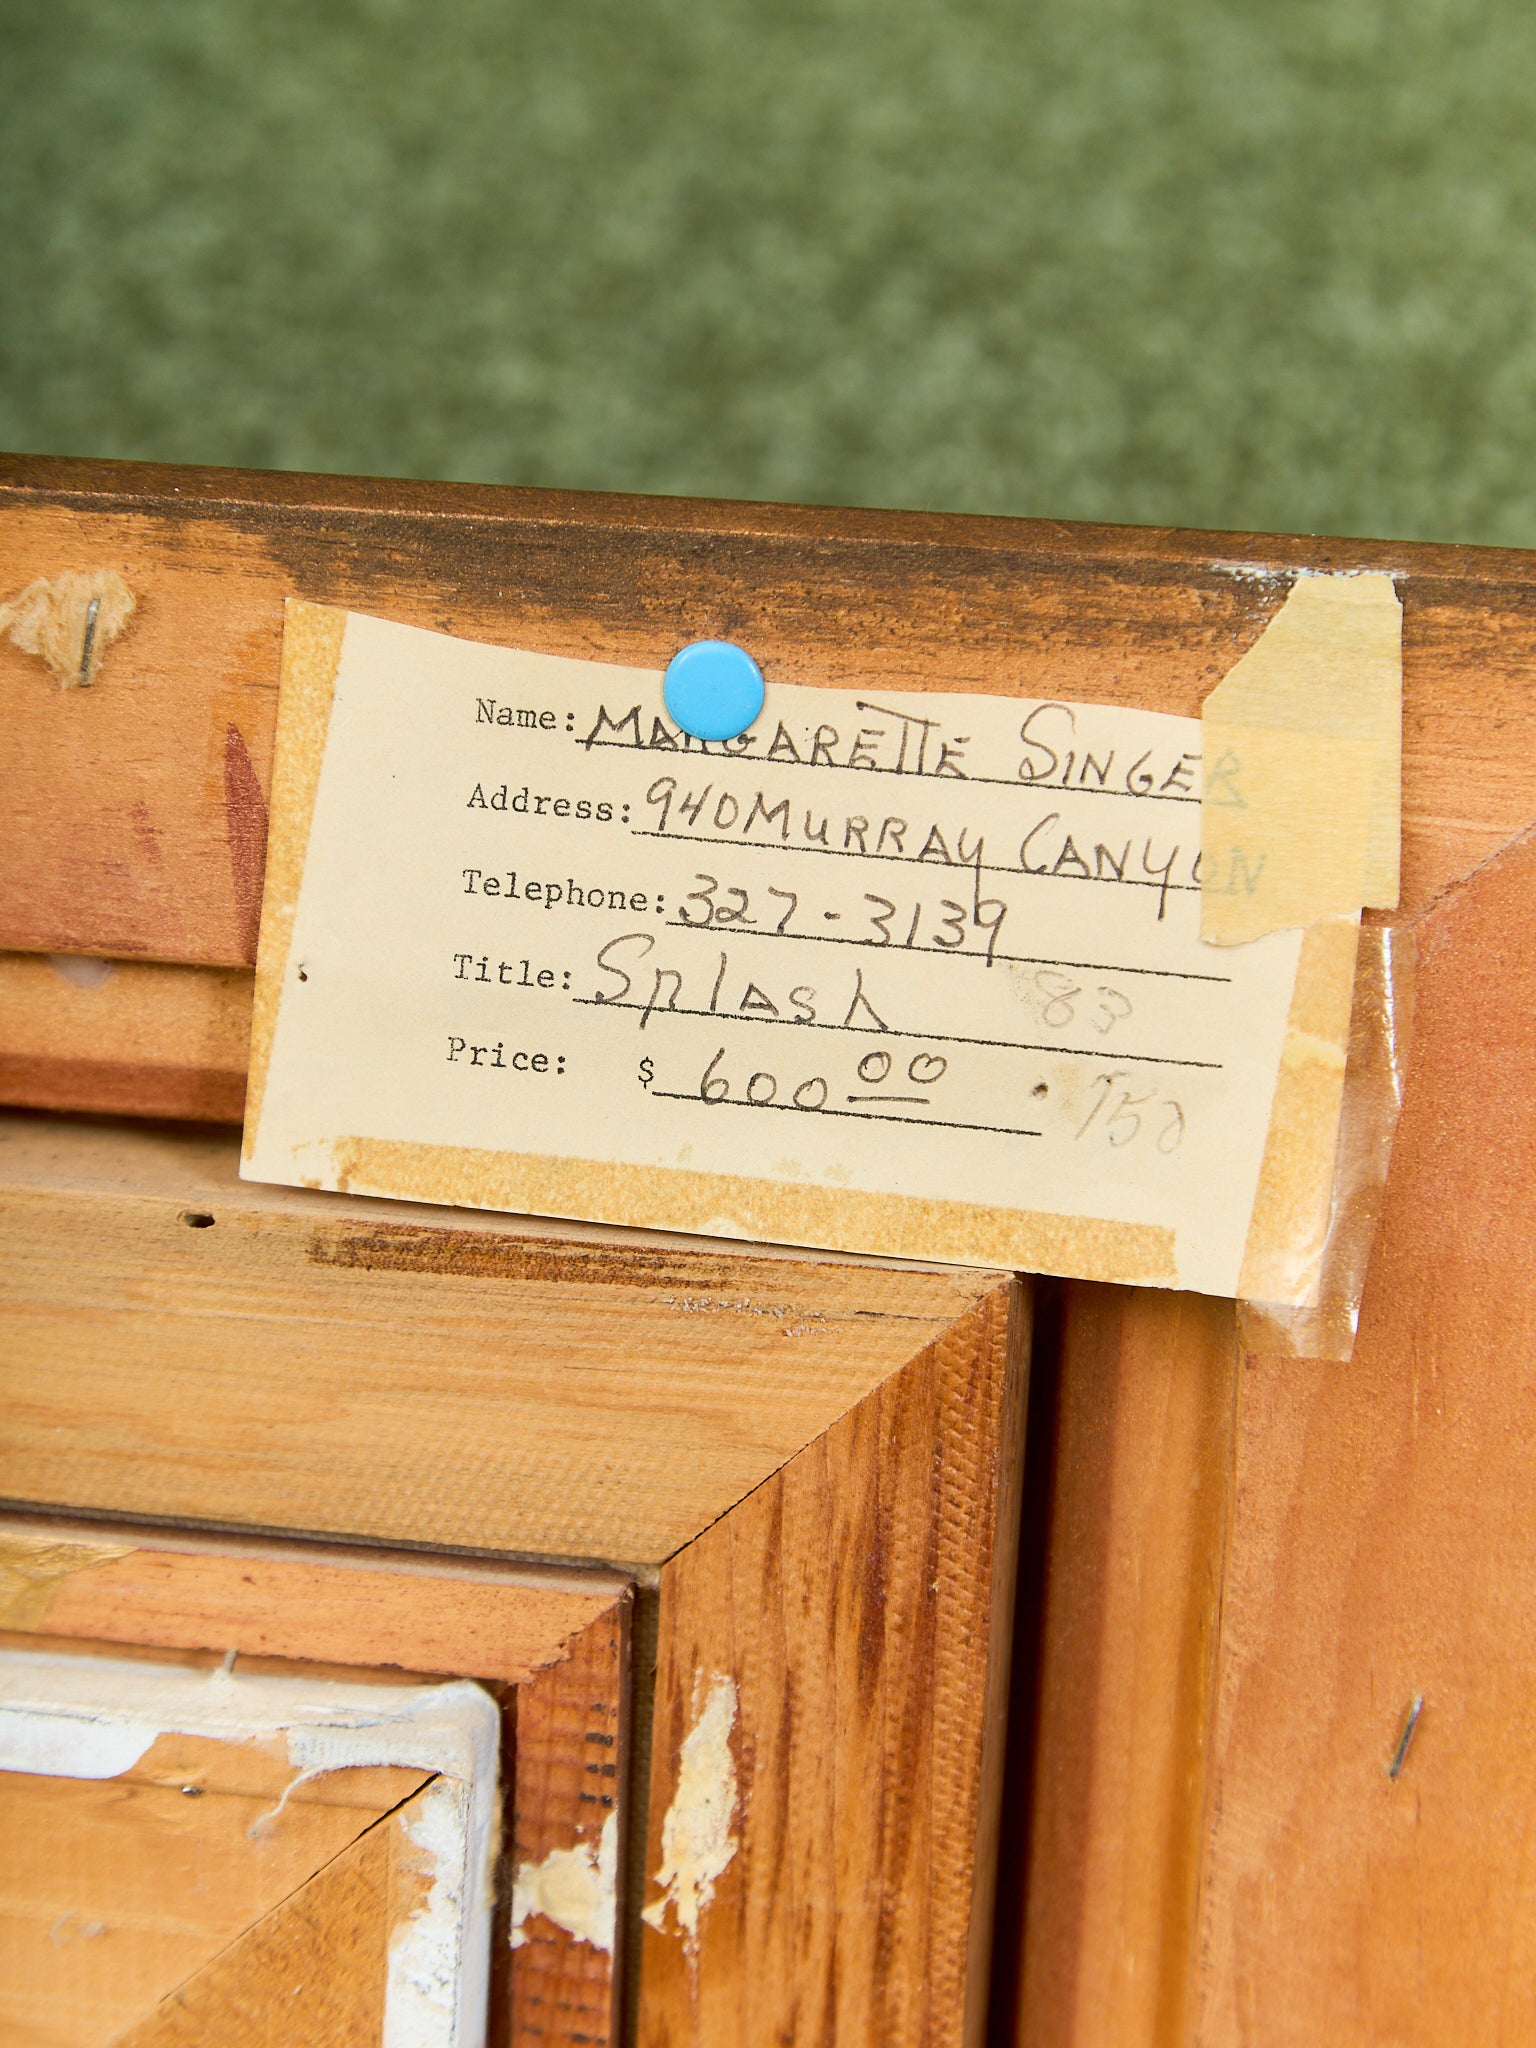 Name: MARGARETTE SINGER
Address: 940 MURRAY CANYON
Telephone: 327-3139
Title: Splash 83
Price: $ 600 00 750